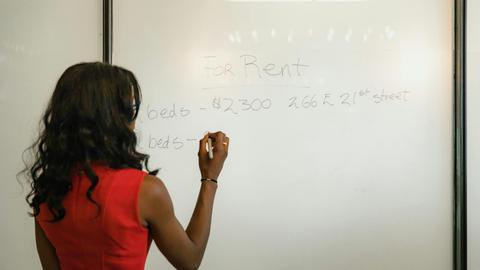 For Rent
beds - $2300 266 E 21st street
beds -